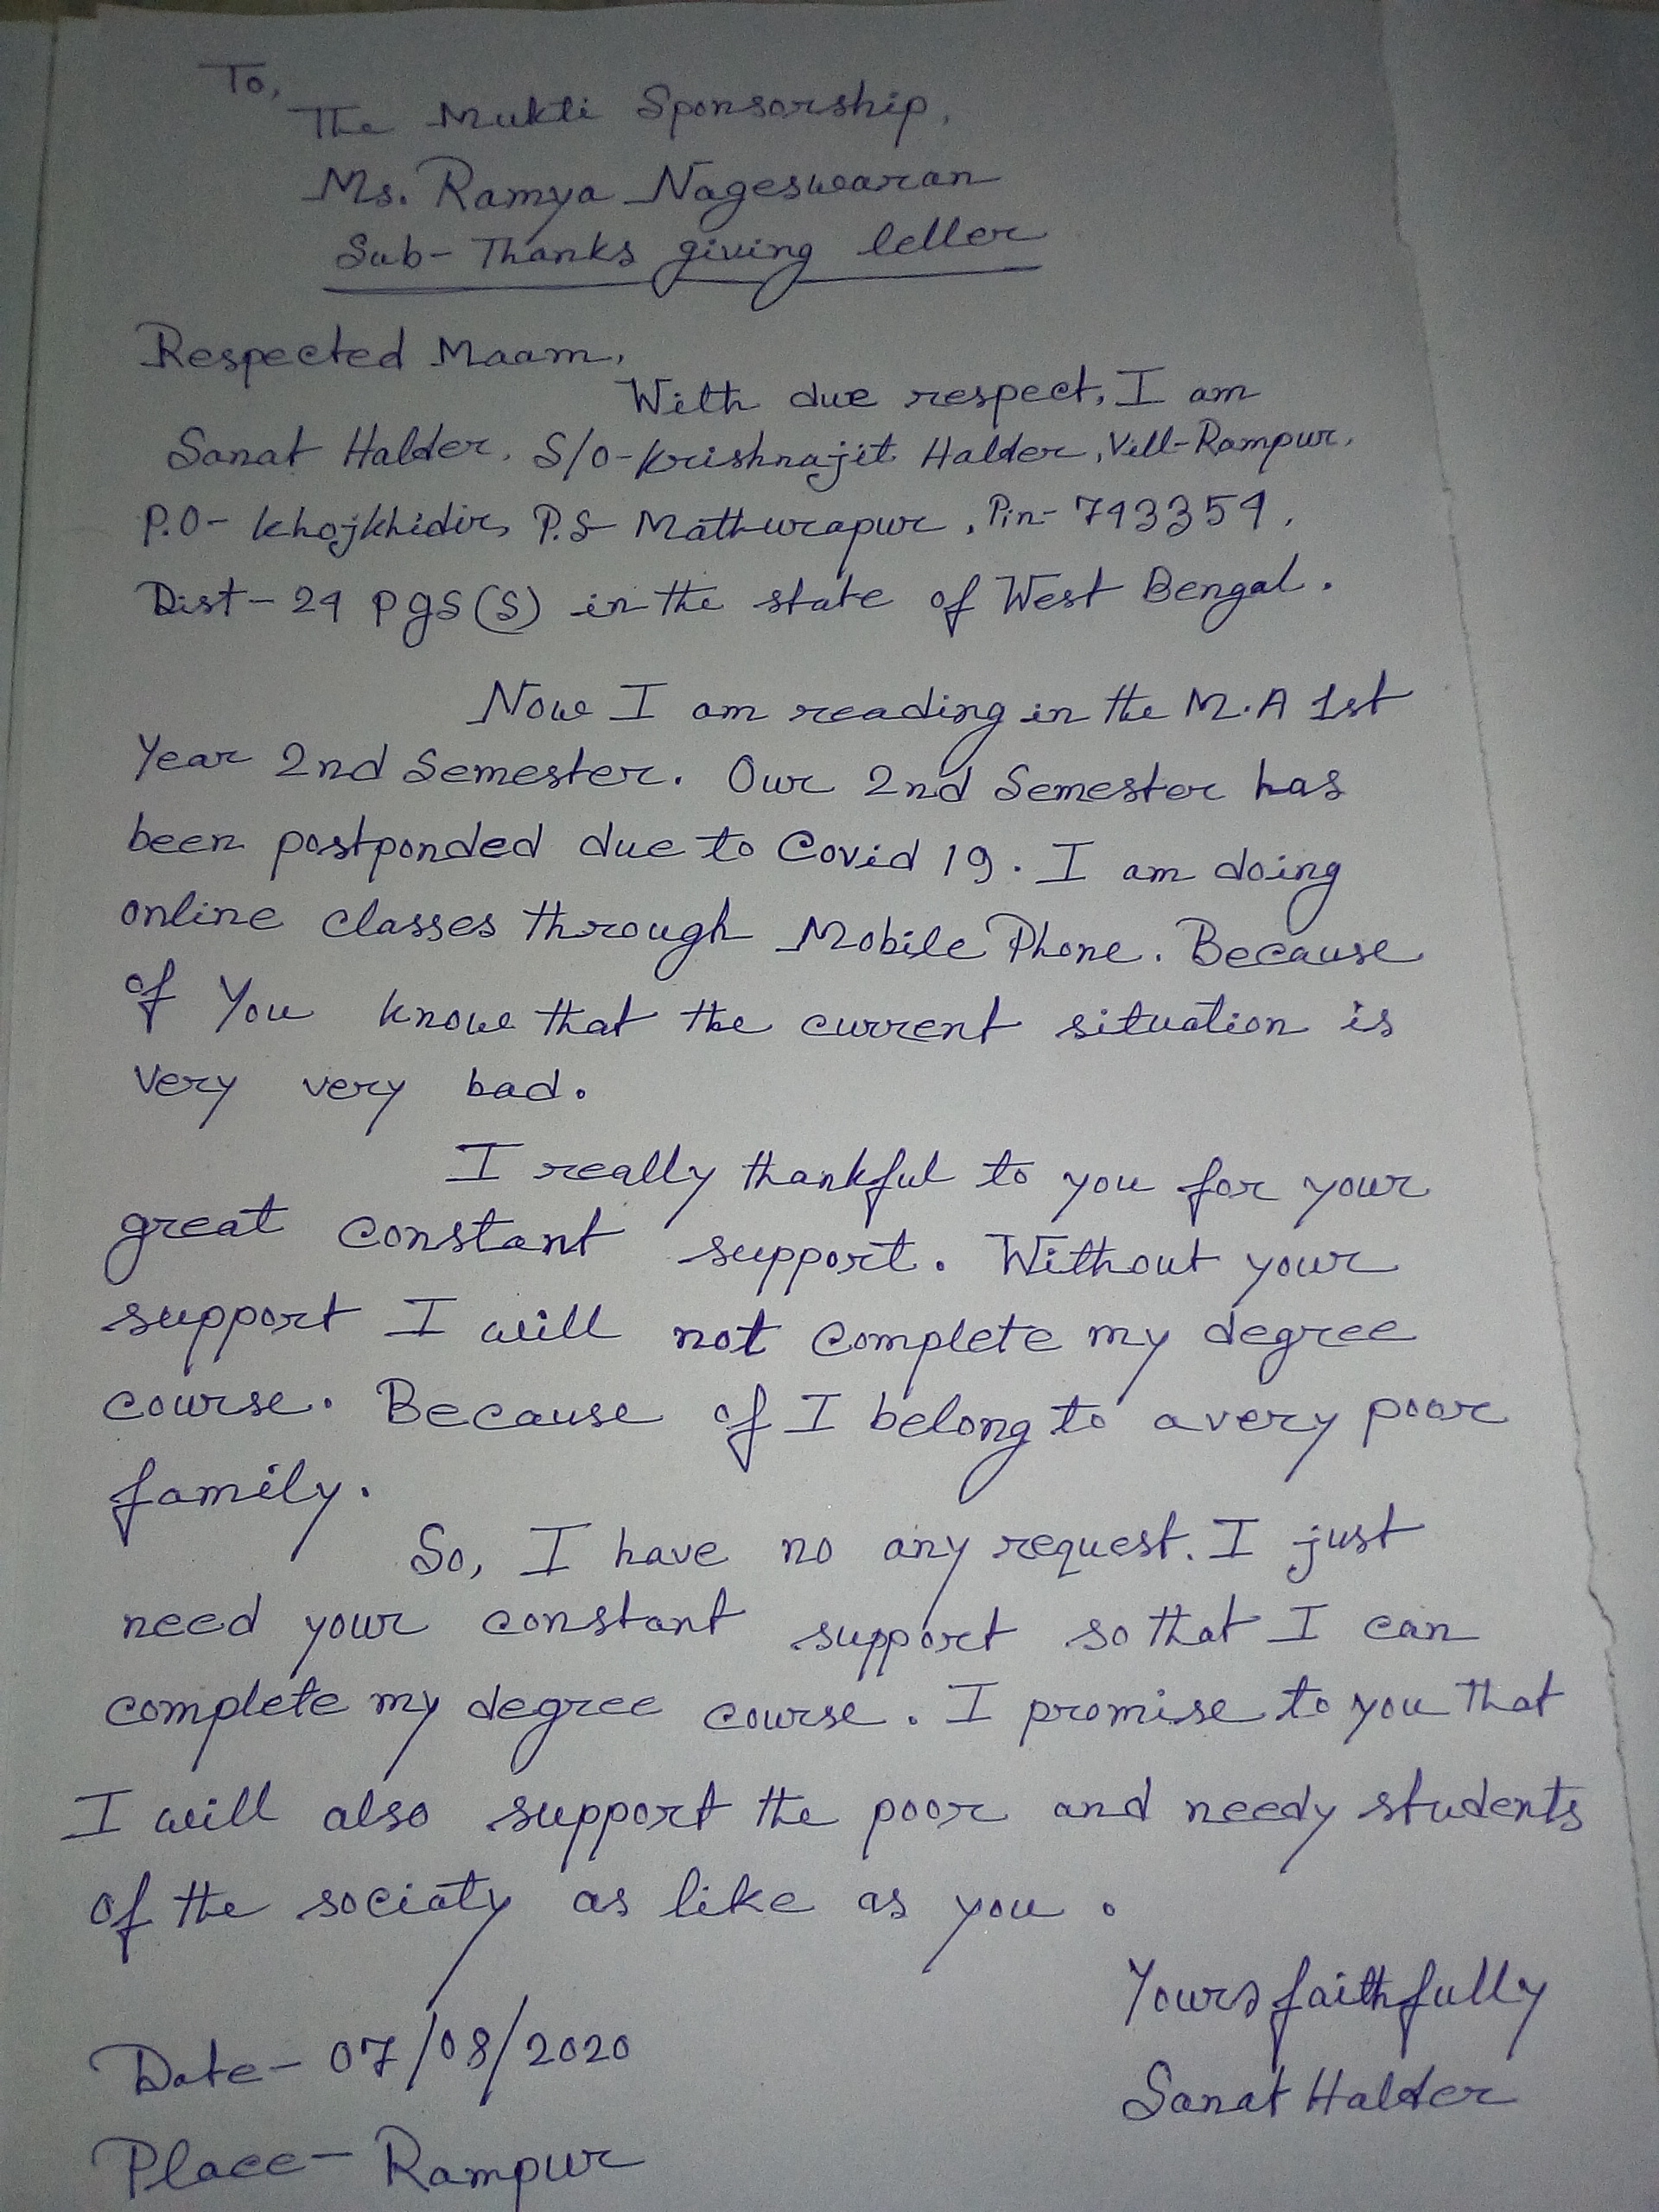 To,
The Mukti Sponsorship,
Ms. Ramya Nageswaran
Sub- Thanks giving letter
Respected Maam,
With due respect, I am
Sanat Halder, S/O-Krishnajit Halder, Vill-Rampur,
P.O- Khojkhidir, P.S- Mathurapur, Pin- 743354,
Dist- 24 pgs(S) in the state of West Bengal.
Now I am reading in the M.A 1st
Year 2nd Semester. Our 2nd Semester has
been postponded due to Covid 19. I am doing
online classes through Mobile Phone. Because
of You know that the current situation is
very very bad.
I really thankful to you for your
great constant support. Without your
support I will not complete my degree
course. Because of I belong to a very poor
family.
So, I have no any request. I just
need your constant support so that I can
complete my degree course. I promise to you that
I will also support the poor and needy students
of the sociaty as like as you.
Yours faithfully
Date- 07/08/2020
Sanat Halder
Place- Rampur